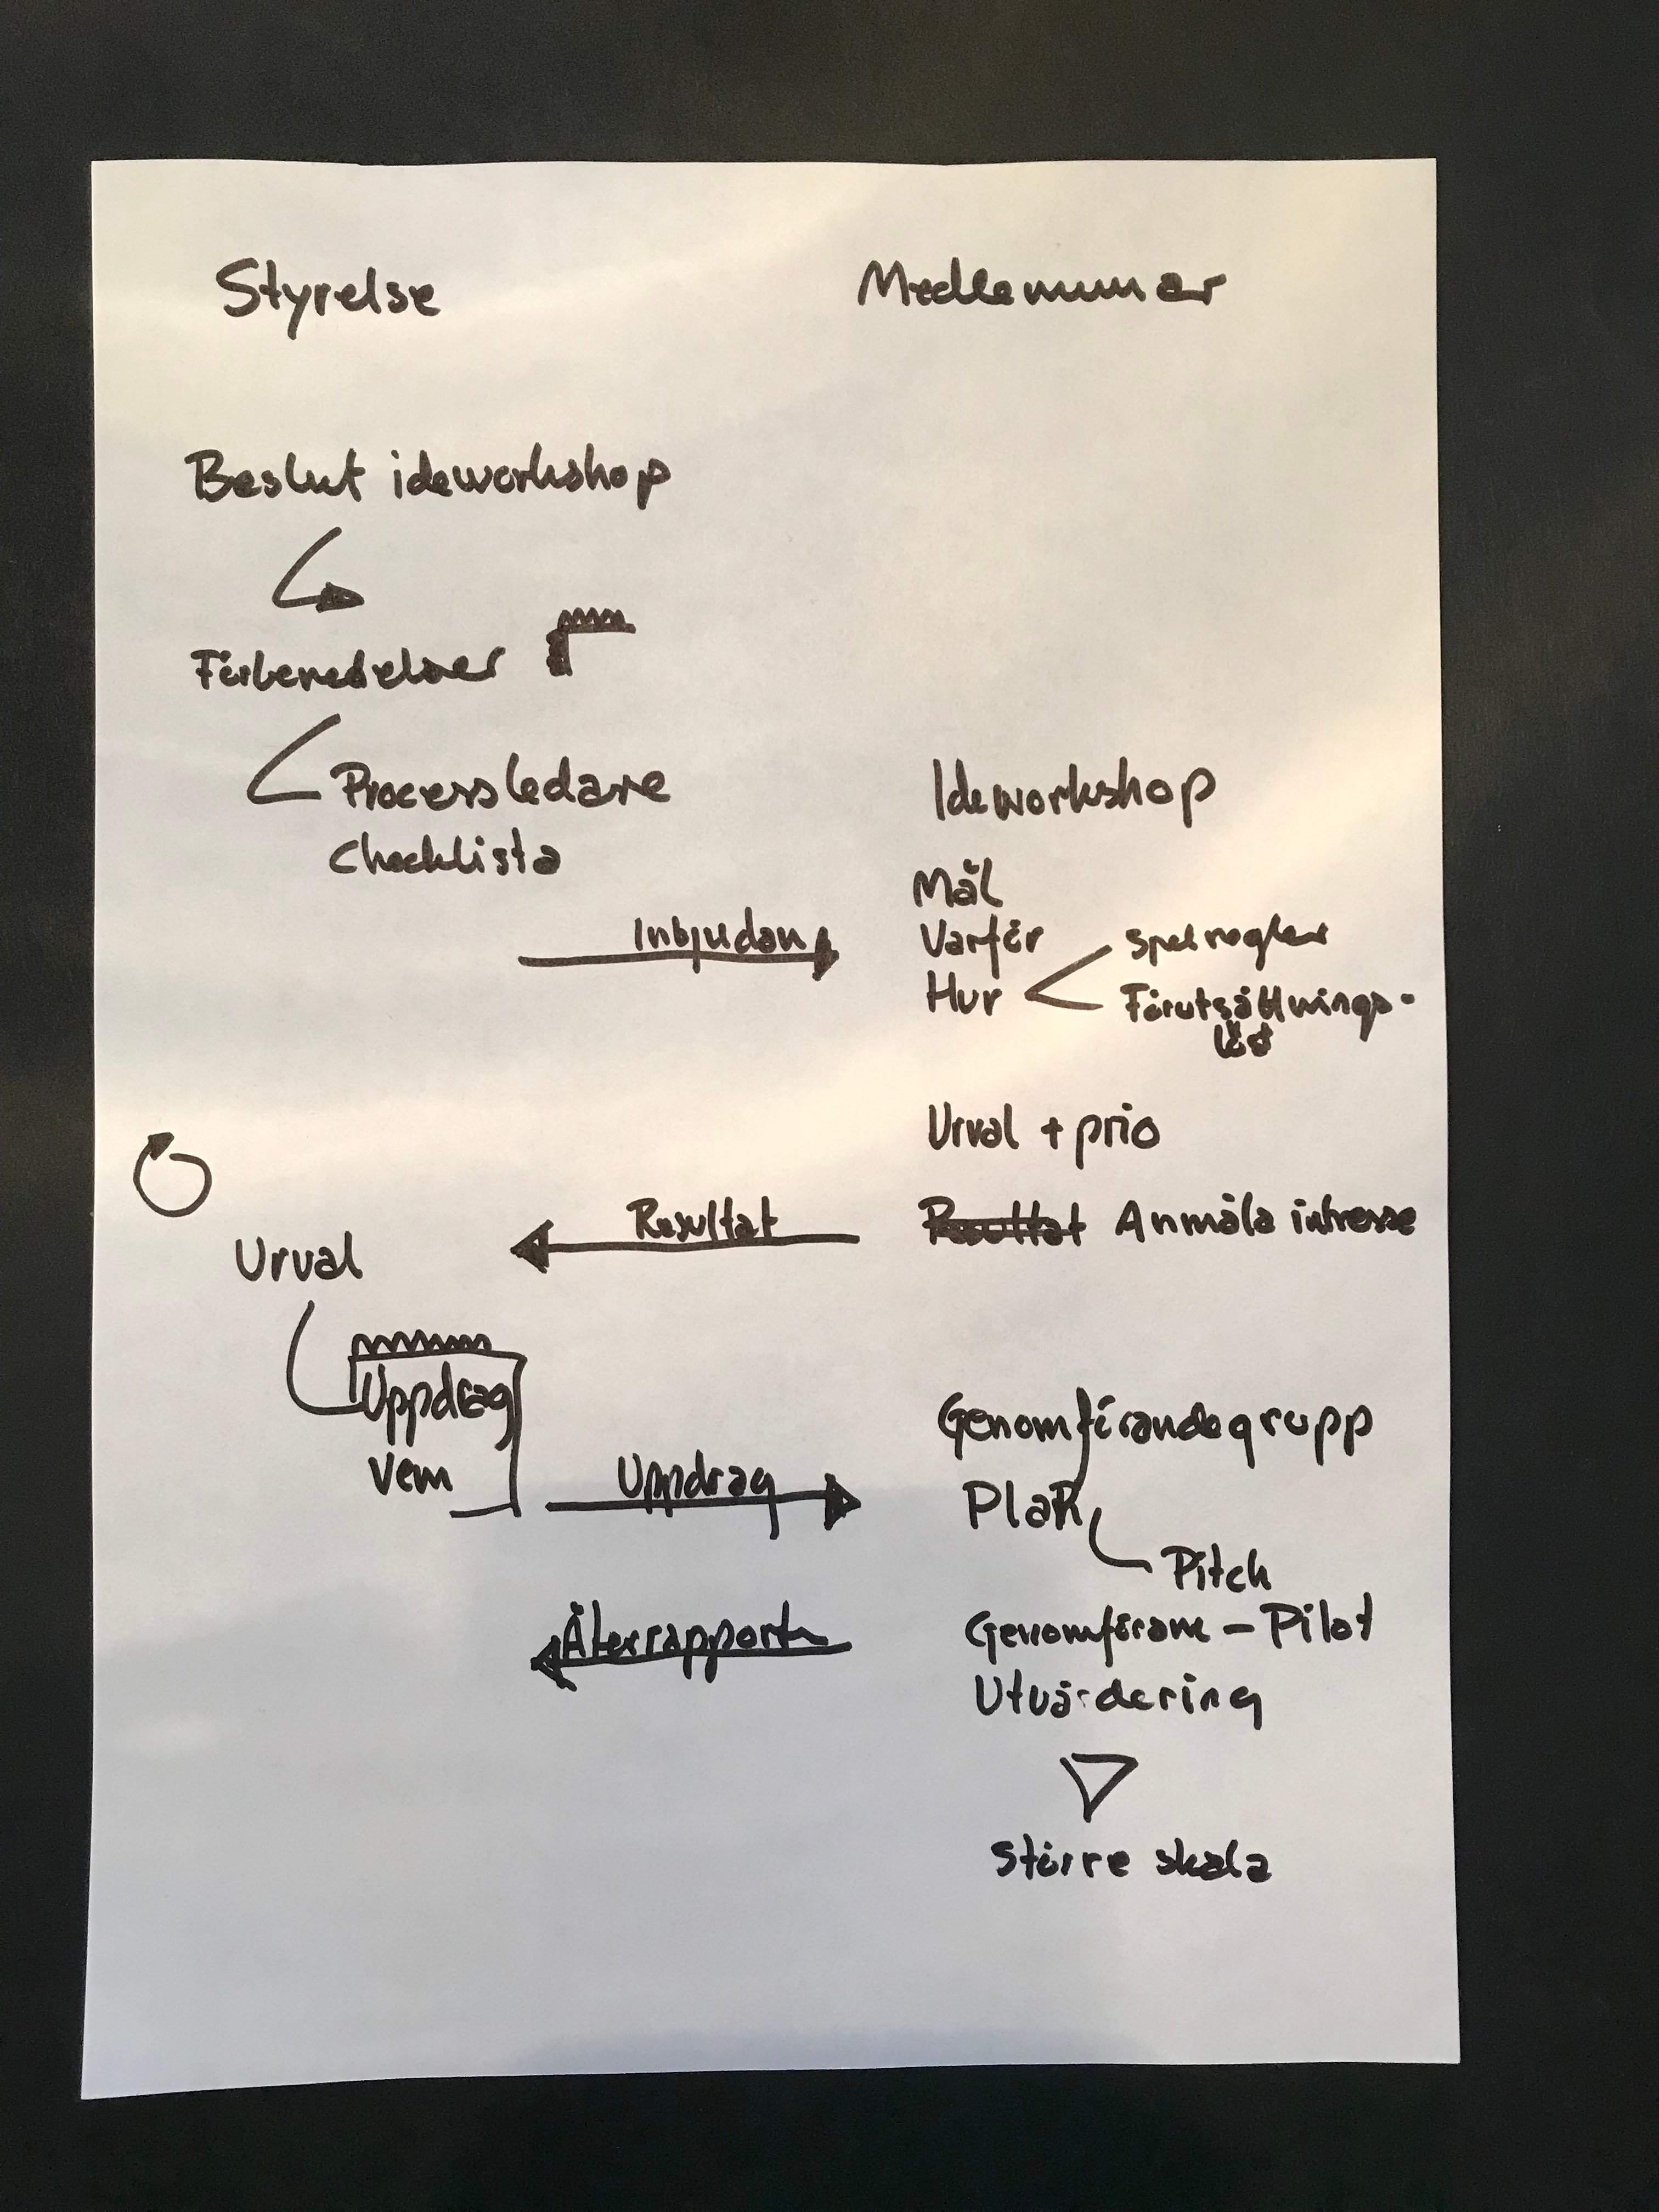 Styrelse
Medlemmar
Beslut ideworkshop
Förberedelser
Processledare
Checklista
Ideworkshop
Mål
Varför
Hur
Spelregler
Förutsättnings-
löst
Inbjudan
Urval + prio
Resultat Anmäla intresse
Resultat
Urval
Uppdrag
Vem
Uppdrag
Genomförandegrupp
Plan
Pitch
Genomföran - Pilot
Återrapport
Utvärdering
Större skala